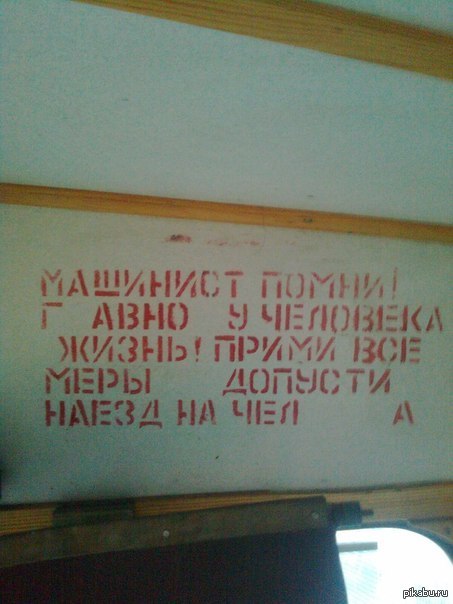 МАШИНИСТ ПОМНИ!
Г АВНО У ЧЕЛОВЕКА
ЖИЗНЬ! ПРИМИ ВСЕ
МЕРЫ ДОПУСТИ
НАЕЗД НА ЧЕЛ А
pikabu.ru